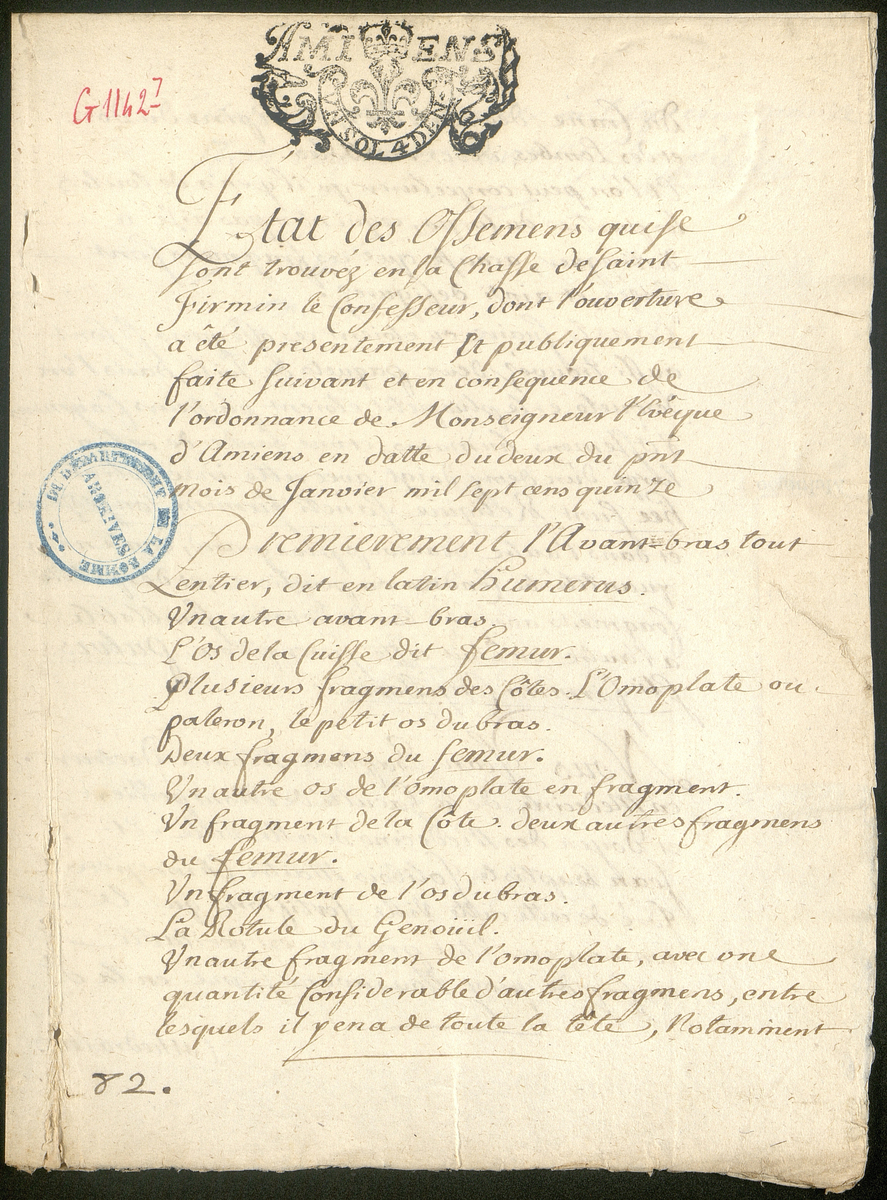 AMIENS
UN SOL 4 DEN
G1142⁷
Etat des Ossemens qui se
sont trouvéz en la Chasse de saint
Firmin le Confesseur, dont l'ouverture
a êté presentement Et publiquement
faite suivant et en consequence de
l'ordonnance de Monseigneur l'Evêque
d'Amiens en datte du deux du pñt
mois de Janvier mil sept cens quinze
DU DÉPARTEMENT DE LA SOMME
ARCHIVES
Premierement l'Avant=bras tout
Entier, dit en latin humerus.
Un autre avant bras.
L'Os de la Cuisse dit femur.
Plusieurs fragmens des Côtes. L'Omoplate ou
paleron, le petit os du bras.
Deux fragmens du femur.
Un autre os de l'omoplate en fragment.
Un fragment de la Côte. deux autres fragmens
du femur.
Un fragment de l'os du bras.
La Rotule du Genoüil.
Un autre fragment de l'omoplate, avec une
quantité Considerable d'autres fragmens, entre
lesquels il y en a de toute la tête, Notamment
82.